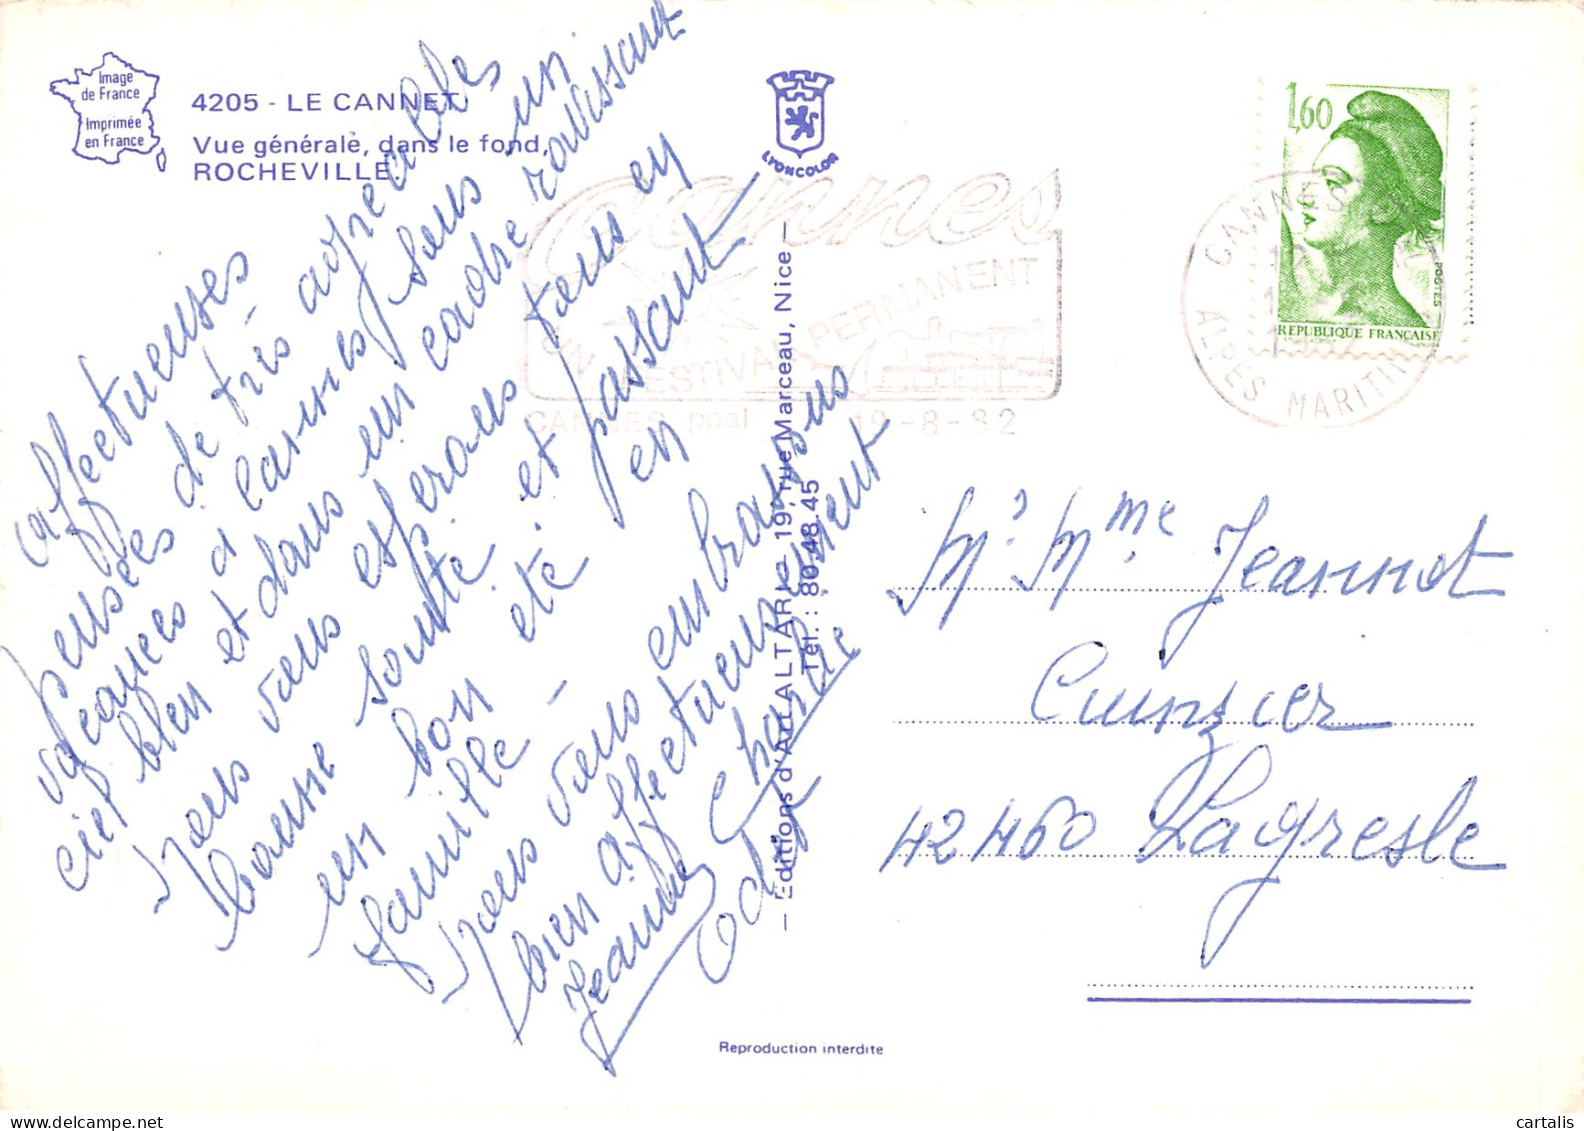 Image
de France
Imprimée
en France
4205 - LE CANNET
Vue générale, dans le fond,
ROCHEVILLE
LYONCOLOR
affectueuses
pensées de très agréables
vacances à Cannes sous un
ciel bleu et dans un cadre ravissant
Nous vous espérons tous en
bonne santé et passant
un bon été en
famille -
Nous vous embrassons
bien affectueusement
Jeannine Charlie
Odey
Editions d'Art ALTARI - 19, rue Marceau, Nice -
Tél. : 80.48.45
Cannes
UN FESTIVAL PERMANENT
CANNES ppal 19-8-82
CANNES
ALPES MARITIMES
1,60
POSTES
REPUBLIQUE FRANÇAISE
GANDON
Mr Mme Jeannot
Cunzier
42460 Lagresle
Reproduction interdite
cartalis